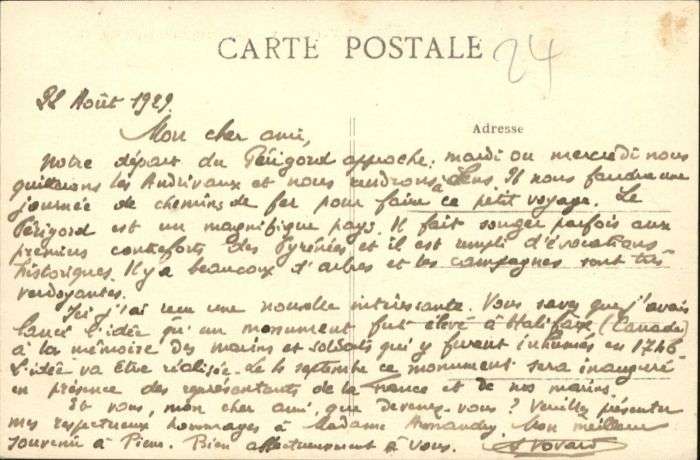 CARTE POSTALE
24
22 Août 1929.
Mon cher ami,
Adresse
Notre départ du Périgord approche; mardi ou mercredi nous
quitterons les Andrivaux et nous rendrons à Sens. Il nous faudra une
journée de chemins de fer pour faire ce petit voyage. Le
Périgord est un magnifique pays. Il fait songer parfois aux
premiers contreforts des Pyrénées et il est empli d'évocations
historiques. Il y a beaucoup d'arbres et les campagnes sont très
verdoyantes.
Ici j'ai reçu une nouvelle intéressante. Vous savez que j'avais
lancé l'idée qu'un monument fut élevé à Halifax (Canada)
à la mémoire des marins et soldats qui y furent inhumés en 1746
L'idée va être réalisée. Le 4 septembre ce monument sera inauguré
en présence des représentants de la France et de nos marins.
Et vous, mon cher ami, que devenez-vous? Veuillez présenter
mes respectueux hommages à Madame Amandry. Mon meilleur
souvenir à Pierre. Bien affectueusement à vous.